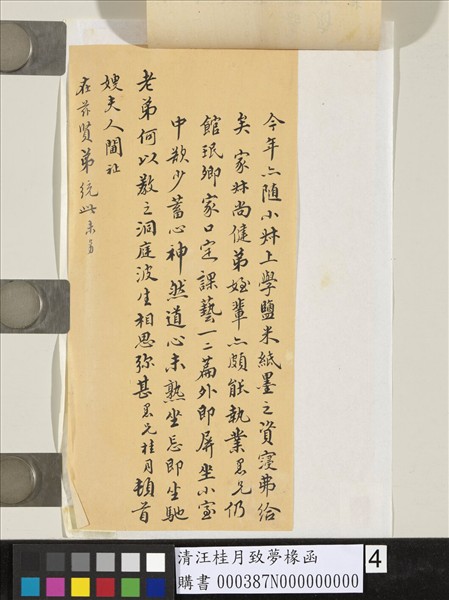 今年亦随小妹上學鹽米紙墨之資寖弗給
矣 家妹尚健弟姪輩亦頗能執業愚兄仍
館珉卿家日定課藝一二篇外即屏坐小室
中欲少蓄心神然道心未熟坐忘即坐馳
老弟何以教之洞庭波生相思弥甚愚兄桂月頓首
嫂夫人閫祉
在茲賢弟統此未另
清汪桂月致夢橡函
購書 000387N000000000
4